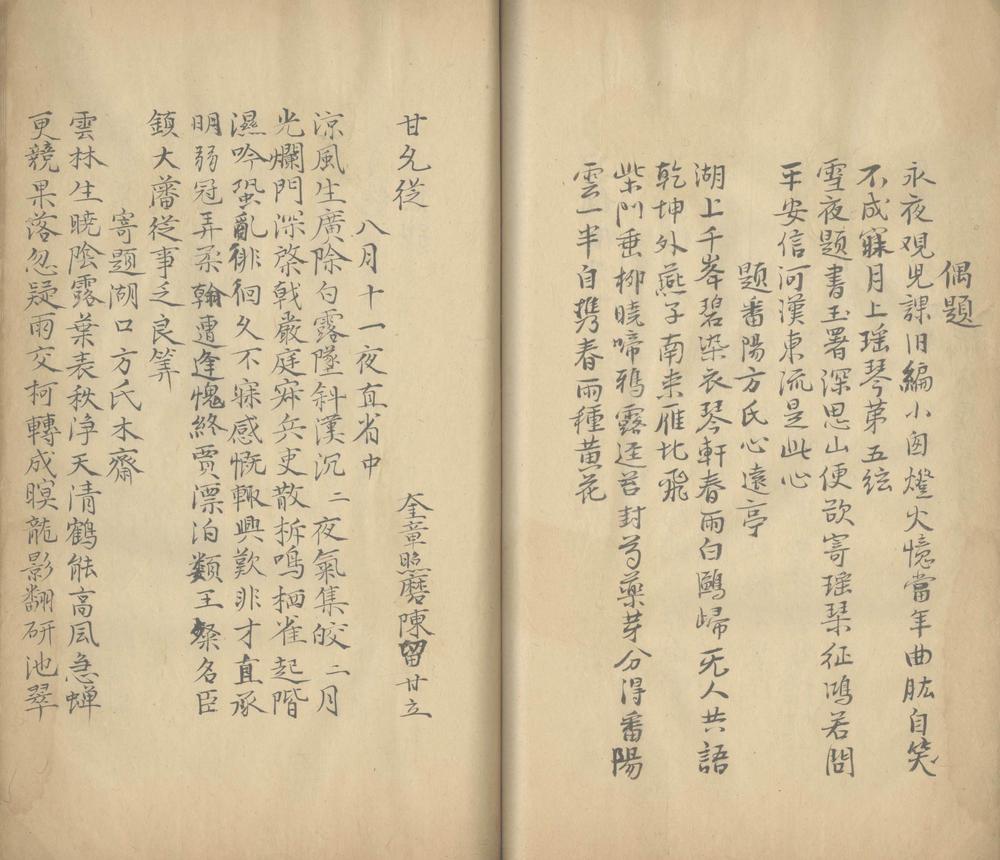 偶題
永夜观児課旧編小囱燈火憶當年曲肱自笑
不成寐月上瑶琴苐五絃
雪夜題書玉署深思山便欲寄瑶琹征鴻若問
平安信河漢東流是此心
題番陽方氏心遠亭
湖上千峯碧染衣琴軒春雨白鷗歸旡人共語
乾坤外燕子南来雁北飛
柴門垂柳曉啼鴉露逕苔封芍藥芽分得番陽
雲一半自携春雨種黄花
甘允従
奎章照磨陳留甘立
八月十一夜直省中
涼風生廣除白露墜斜漢沉二夜氣集皎二月
光爛門深棨戟嚴庭寂兵吏散柝鳴栖雀起階
濕吟蛩亂徘徊久不寐感慨輙興歎非才直承
明弱冠弄柔翰遭逢愧終賈漂泊類王粲名臣
鎮大藩従事乏良筭
寄題湖口方氏木齋
雲林生曉陰露葉表秋淨天清鶴䏻高風急蟬
更競果落忽疑雨交柯轉成暝龍影翻研池翠